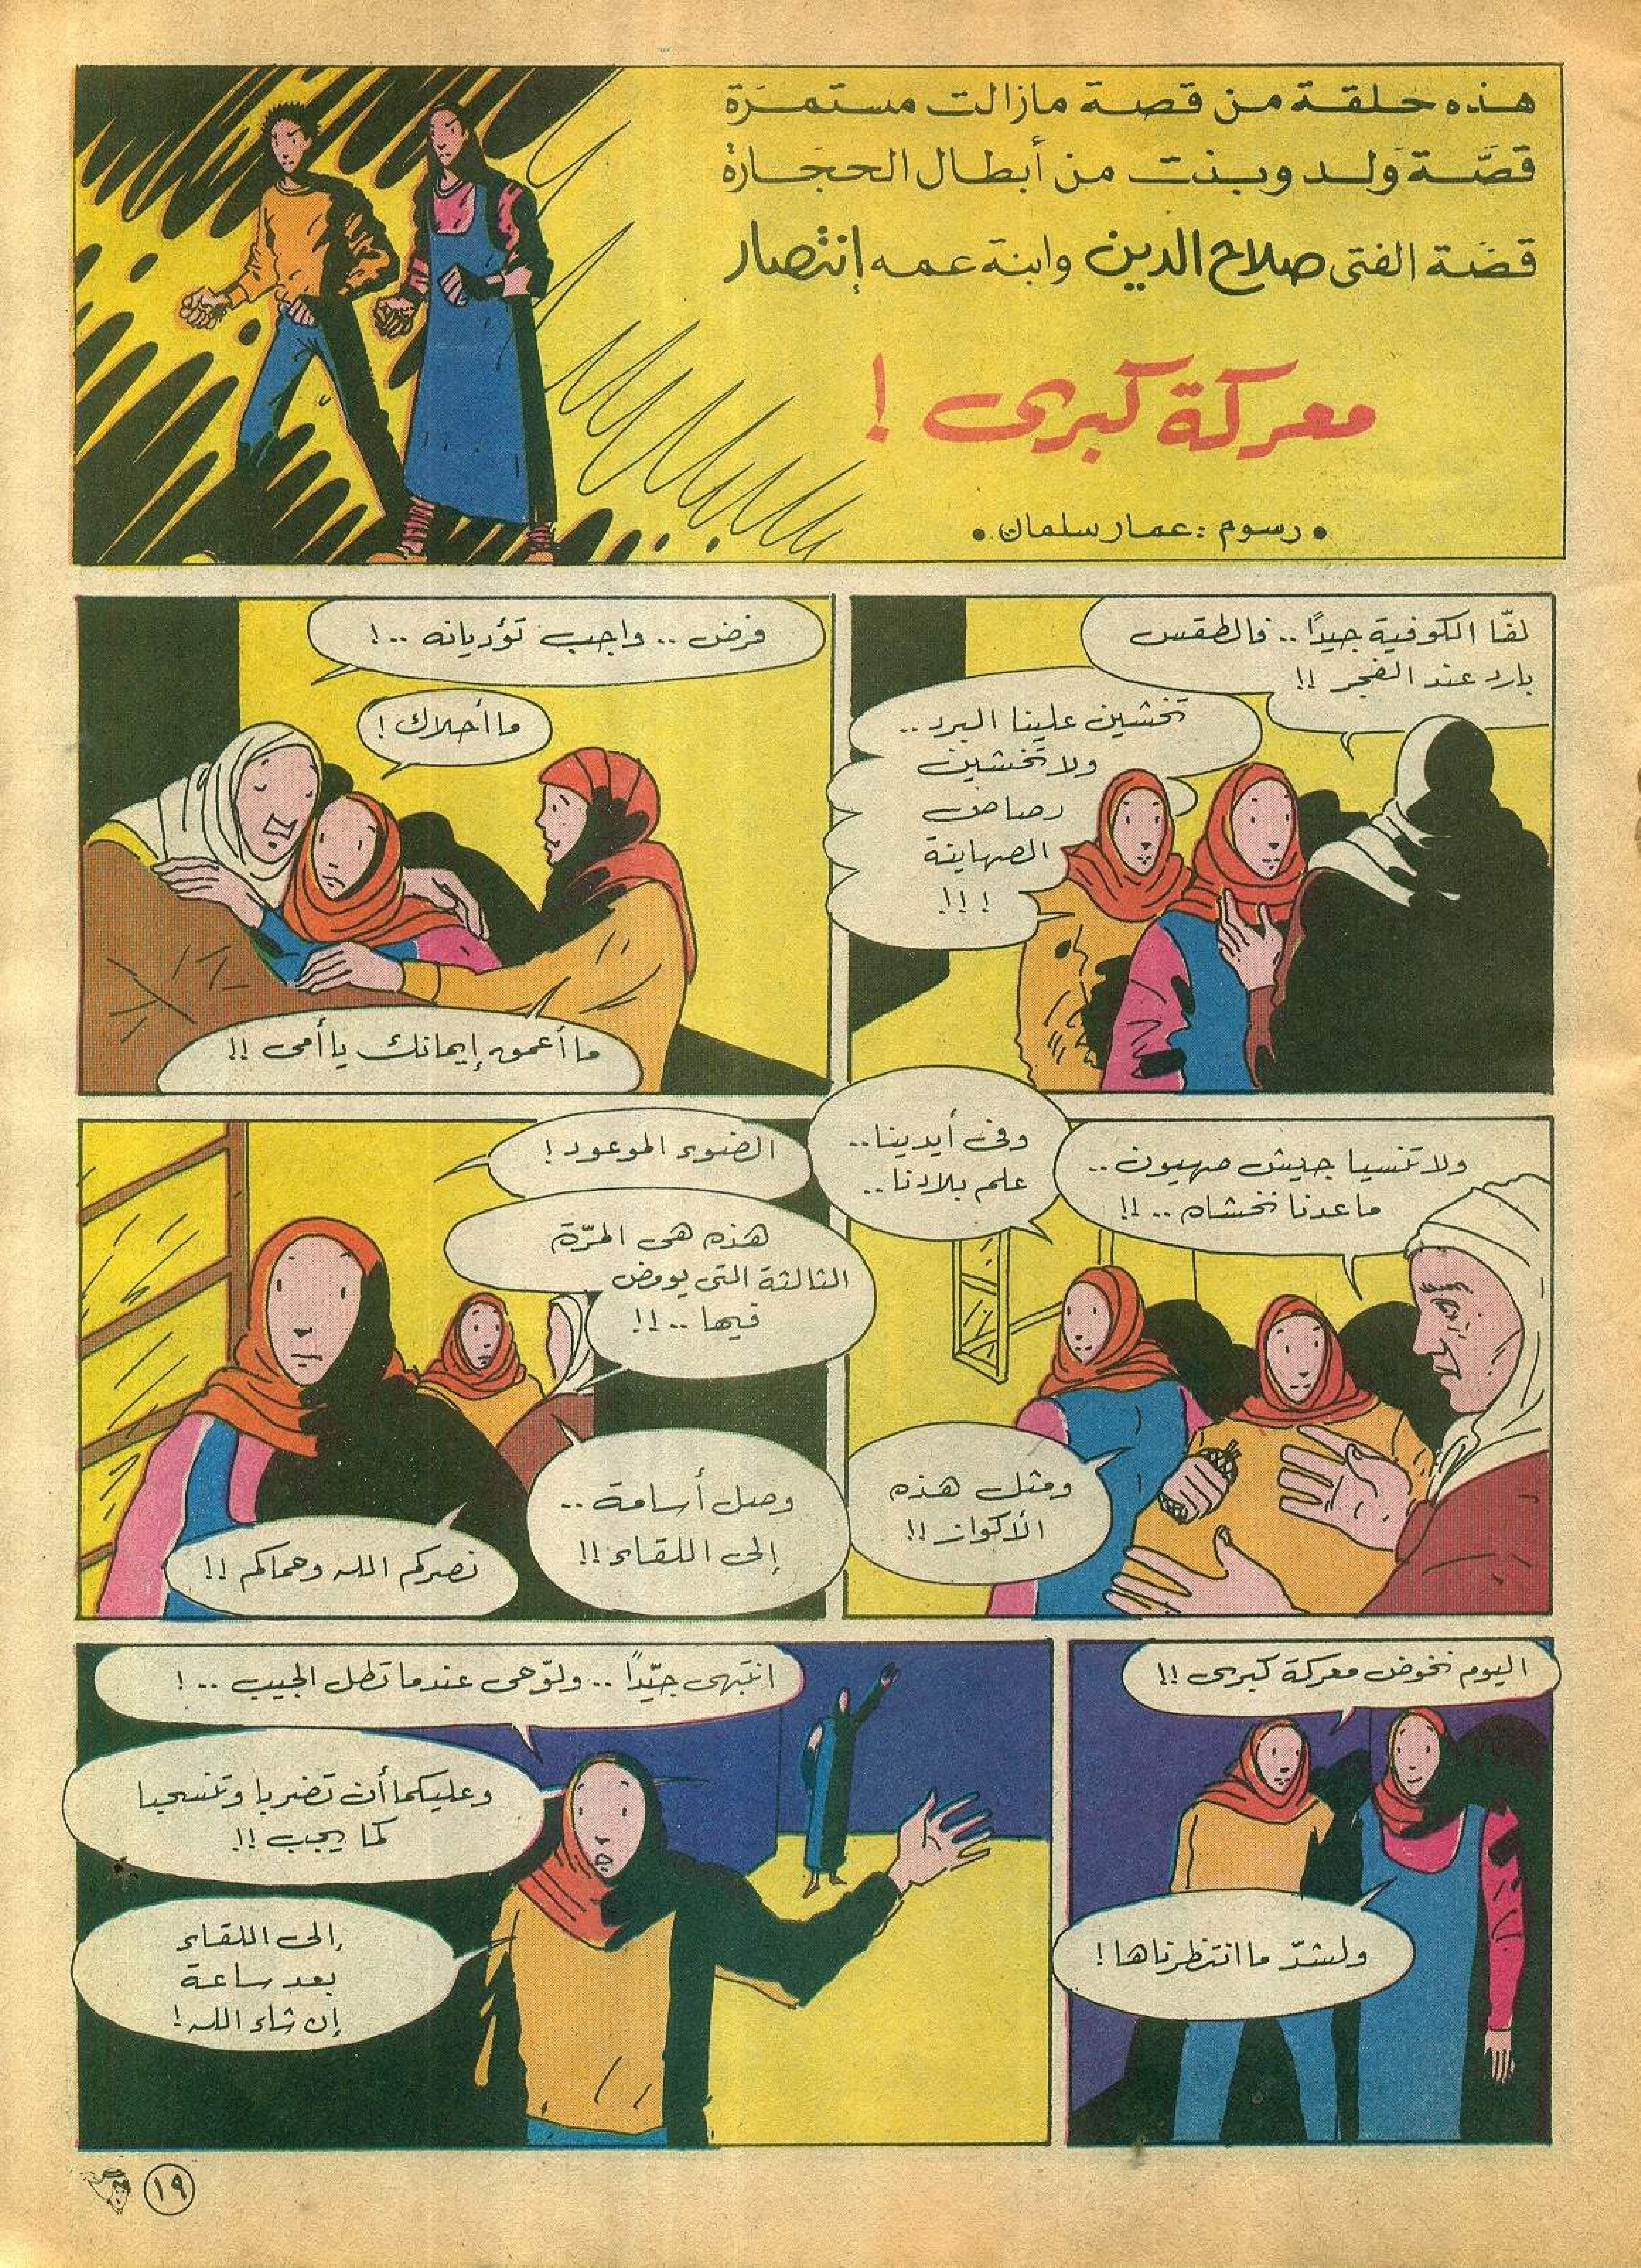 هذه حلقة من قصة مازالت مستمرّة
قصّة ولد وبنت من أبطال الحجارة
قصّة الفتى صلاح الدين وابنة عمه إنتصار
معركة كبرى !
• رسوم : عمار سلمان •
لفّا الكوفية جيداً .. فالطقس
بارد عند الفجر !!
تخشين علينا البرد ..
ولا تخشين
رصاص
الصهاينة
! !!
فرض .. واجب تؤديانه .. !
ما أحلاك !
ما أعمق إيمانك يا أمى !!
ولا تنسيا جيش صهيون ..
ما عدنا نخشاه .. !!
وفى أيدينا ..
علم بلادنا ..
ومثل هذه
الأكواز !!
الضوء الموعود !
هذه هى المرّة
الثالثة التى يومض
فيها .. !!
وصل أسامة ..
إلى اللقاء !!
نصركم الله وحماكم !!
اليوم نخوض معركة كبرى !!
ولشدّ ما انتظرناها !
انتبهى جيّداً .. ولوّحى عندما تطل الجيب .. !
وعليكما أن تضربا وتنسحبا
كما يجب !!
إلى اللقاء
بعد ساعة
إن شاء الله !
١٩